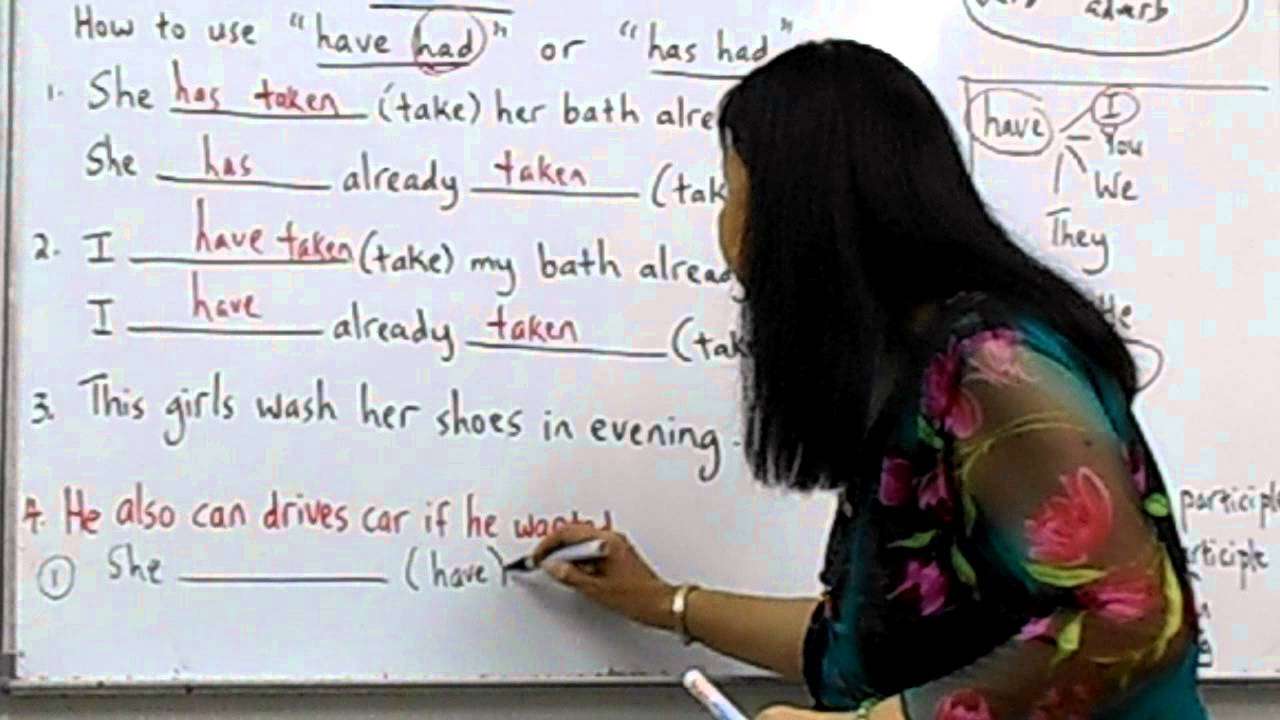 How to use "have had" or "has had"
1. She has taken (take) her bath alre
She has already taken (tak
2. I have taken (take) my bath already
I have already taken (tak
3. This girls wash her shoes in evening.
4. He also can drives car if he wanted
① She ________ (have)
adverb
have I
You
We
They
He
participle
rticiple